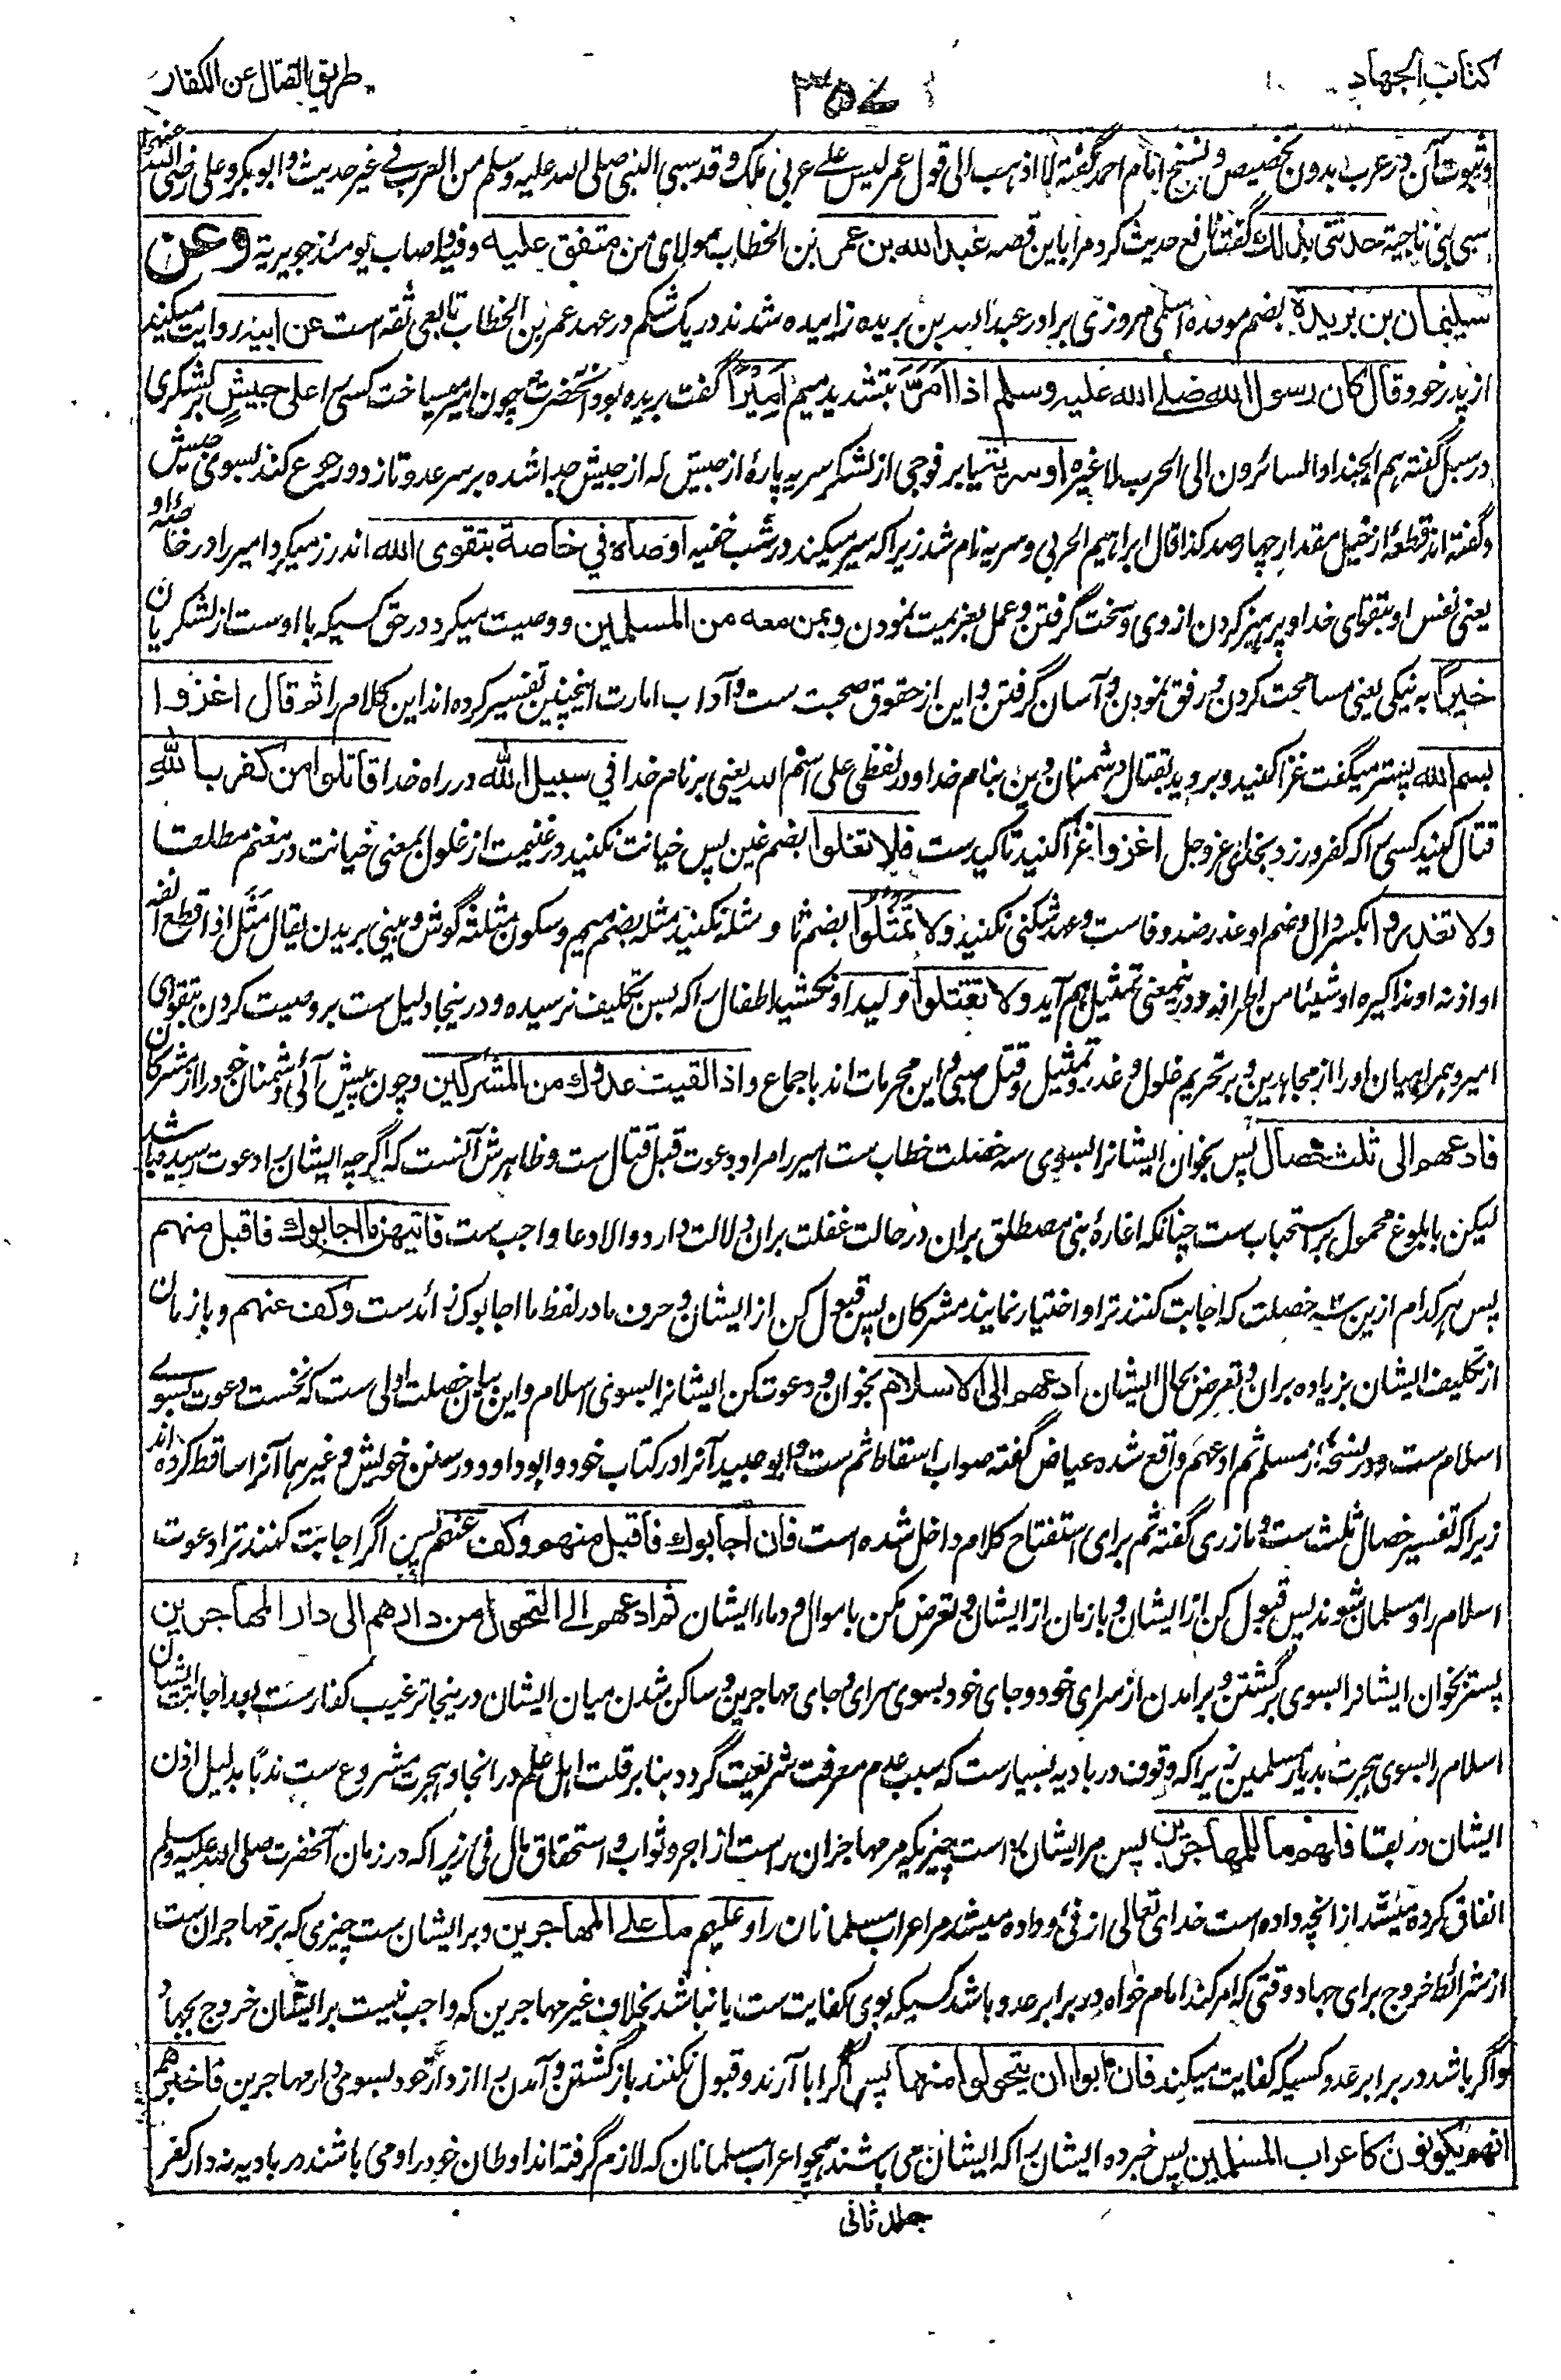 کتاب الجهاد
۳۵۷
طریق القتال عن الکفار
و ثبوت آن در عرب بدون تخصیص و نسخ امام احمد گفته لا اذهب الی قول عمر لیس علے عربی ملک و قد سبی النبی صلی الله علیه وسلم من العرب فے غیر حدیث و ابو بکر و علی رضی الله عنهما
سبی بنی ناجیة حدثنی بذلك گفت نافع حدیث کرد مرا باین قصه عبد الله بن عمر بن الخطاب مولای من متفق علیه وفیه و اصاب یومئذ جویریة وعن
سلیمان بن بریدة بضم موحده اسلمی مروزی برادر عبد الله بن بریده زاییده شدند در یک شکم در عهد عمر بن الخطاب تابعی ثقه است عن ابیه روایت میکند
از پدر خود قال كان رسول الله صلے الله علیه وسلم اذا امّر بتشدید میم امیرًا گفت بریده بود آنحضرت چون امیر میساخت کسی را علی جیشٍ بر لشکری
در سبل گفته هم الجند او السائرون الی الحرب لا غیره او سریة یا بر فوجی از لشکر سریه پارۂ از جیش که از جیش جدا شده بر سر عدو تازد و رجوع کند بسوی جیش
و گفته اند قطعۂ از خیل مقدار چهار صد کذا قال ابراهیم الحربی و سریه نام شد زیرا که سیر میکند در شب خفیه اوصاه في خاصة بتقوى الله اندرز میکرد امیر را در خاصه او
یعنی نفس او بتقوای خدا و پرهیز کردن از وی و سخت گرفتن و عمل بعزیمت نمودن وبمن معه من المسلمین و وصیت میکرد در حق کسیکه با اوست از لشکریان
خیرًا به نیکی یعنی مسامحت کردن و رفق نمودن و آسان گرفتن و این از حقوق صحبت ست و آداب امارت اینچنین تفسیر کرده اند این کلام را ثم قال اغزوا
بسم الله پستر میگفت غزا کنید و بروید بقتال دشمنان دین بنام خدا و در لفظی علی اسم الله یعنی بر نام خدا في سبيل الله در راه خدا قاتلوا من كفر بالله
قتال کنید کسی را که کفر ورزد بخدای عز و جل اغزوا غزا کنید تاکید ست فلا تغلوا بضم غین پس خیانت نکنید در غنیمت از غلول بمعنی خیانت در مغنم مطلقا
ولا تغدروا بکسر دال و ضم او غدر ضد وفاست و عهد شکنی نکنید ولا تمثلوا بضم ثا و مثله نکنید مثله بضم میم و سکون مثلثه گوش و بینی بریدن یقال مثل اذا قطع انفه
او اذنه او مذاکیره او شیئا من اطرافه و درینمعنی تمثیل هم آید ولا تقتلوا ولیدا و نکشید اطفال را که بسن تکلیف نرسیده و درینجا دلیل ست بر وصیت کردن بتقوای
امیر و همراهیان او را از مجاهدین و بر تحریم غلول و غدر و تمثیل و قتل صبی و این محرمات اند باجماع واذا لقيت عدوك من المشركین و چون پیش آئی دشمنان خود را از مشرکان
فادعهم الى ثلث خصال پس بخوان ایشانرا بسوی سه خصلت خطاب ست امیر را مراد دعوت قبل قتال ست و ظاهرش آنست که اگرچه ایشان را دعوت رسیده باشد
لیکن با بلوغ محمول بر استحباب ست چنانکه اغارۂ بنی مصطلق بران در حالت غفلت بران دلالت دارد و الا دعا واجب ست فايتهن ما اجابوك فاقبل منهم
پس هر کدام ازین سه خصلت که اجابت کنند ترا و اختیار نمایند مشرکان پس قبول کن از ایشان و حرف ما در لفظ ما اجابوک زائد ست وكف عنهم و باز مان
از تکلیف ایشان بزیاده بران و تعرض بحال ایشان ادعهم الى الاسلام بخوان و دعوت کن ایشانرا بسوی اسلام و این بیان خصلت اولی ست که نخست دعوت بسوے
اسلام ست و در نسخۂ از مسلم ثم ادعهم واقع شده عیاض گفته صواب اسقاط ثم ست و ابو عبید آنرا در کتاب خود و ابو داود در سنن خویش و غیرهما آنرا ساقط کرده اند
زیرا که تفسیر خصال ثلث ست و مازری گفته ثم برای استفتاح کلام داخل شده است فان اجابوك فاقبل منهم وكف عنهم پس اگر اجابت کنند ترا دعوت
اسلام را و مسلمان شوند پس قبول کن از ایشان و باز مان از ایشان و تعرض مکن باموال و دماء ایشان ثم ادعهم الے التحول من دارهم الى دار المهاجرین
پستر بخوان ایشانرا بسوی برگشتن و برآمدن از سرای خود و جای خود بسوی سرای و جای مهاجرین و ساکن شدن میان ایشان درینجا ترغیب کفار ست بعد اجابت ایشان
اسلام را بسوی هجرت بدیار مسلمین زیرا که وقوف در بادیه بسیار ست که سبب عدم معرفت شریعیت گردد بنا بر قلت اهل علم در انجا و هجرت مشروع ست ندبًا بدلیل اذن
ایشان در بقا فلهم ما للمهاجرین پس مر ایشان را است چیزیکه مر مهاجران راست از اجر و ثواب و استحقاق مال فئ زیرا که در زمان آنحضرت صلی الله علیه وسلم
انفاق کرده میشد از انچه داده است خدای تعالی از فئ و داده میشد مر اعراب مسلمانان را وعليهم ما علے المهاجرین و بر ایشان ست چیزی که بر مهاجران ست
از شرائط خروج برای جهاد وقتی که امر کند امام خواه در برابر عدو باشد کسیکه بوی کفایت ست یا نباشد بخلاف غیر مهاجرین که واجب نیست بر ایشان خروج بجهاد
و اگر باشد در برابر عدو کسیکه کفایت میکند فان ابوا ان یتحولوا منها پس اگر ابا آرند و قبول نکنند باز گشتن و آمدن را از دار خود بسوی دار مهاجرین فاخبرهم
انهم يكونون كاعراب المسلمین پس خبر ده ایشان را که ایشان می باشند همچو اعراب مسلمانان که لازم گرفته اند اوطان خود را و می باشند در بادیه نه دار کفر
جلد ثانی